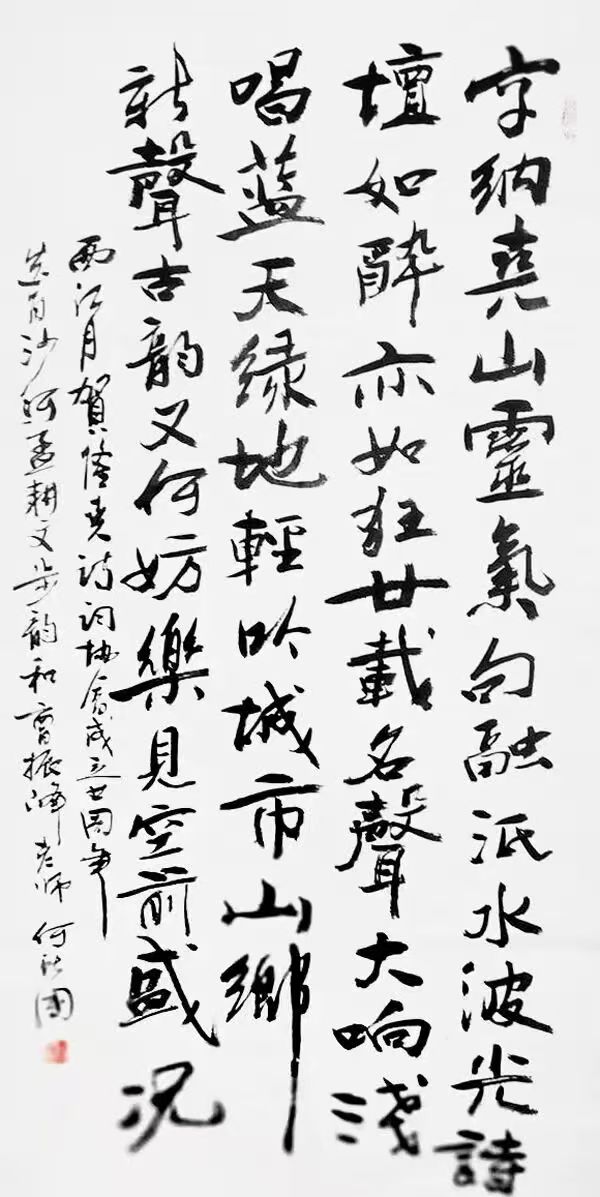 字纳尧山靈氣句融泜水波光詩
壇如醉亦如狂廿載名聲大响淺
喝蓝天绿地輕吟城市山鄉
新聲古韵又何妨樂見空前盛况
西江月贺隆尧诗词协会成立廿周年
白沙 孟耕文步韵和曹振峰老师 何 國